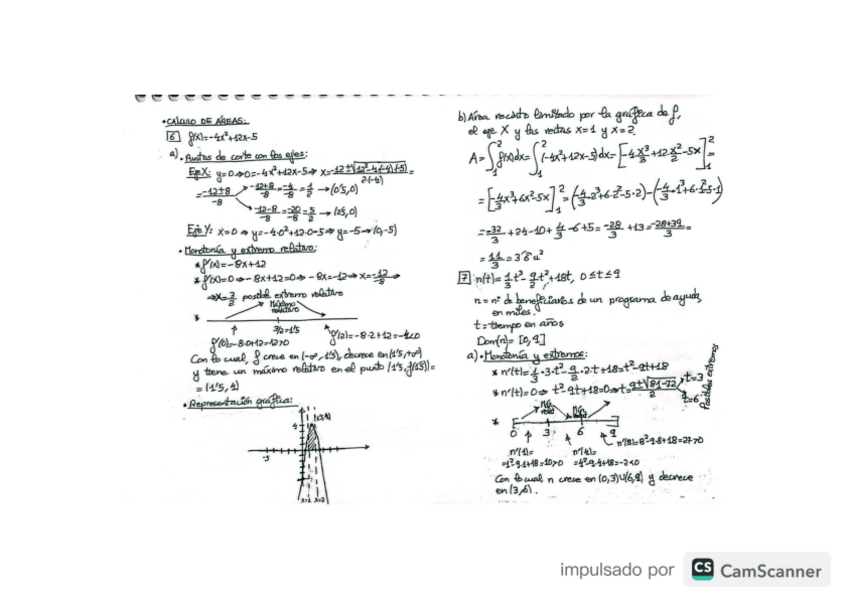 • CÁLCULO DE ÁREAS:
6 f(x)=-4x²+12x-5
a) • Puntos de corte con los ejes:
Eje X: y=0 ⇒ 0=-4x²+12x-5 ⇒ x = (-12±√(12²-4·(-4)·(-5)))/(2·(-4)) =
= (-12±8)/-8
(-12+8)/-8 = -4/-8 = 1/2 → (0'5,0)
(-12-8)/-8 = -20/-8 = 5/2 → (2'5,0)
Eje Y: x=0 ⇒ y=-4·0²+12·0-5 ⇒ y=-5 → (0,-5)
• Monotonía y extremo relativo:
* f'(x)=-8x+12
* f'(x)=0 ⇒ -8x+12=0 ⇒ -8x=-12 ⇒ x=-12/-8 ⇒
⇒ x=3/2 posible extremo relativo
Máximo
relativo
*
3/2=1'5
f'(0)=-8·0+12=12>0
f'(2)=-8·2+12=-4<0
Con lo cual, f crece en (-∞, 1'5), decrece en (1'5,+∞)
y tiene un máximo relativo en el punto (1'5, f(1'5))=
= (1'5, 4)
• Representación gráfica:
4
x=1 x=2
b) Área recinto limitado por la gráfica de f,
el eje X y las rectas x=1 y x=2.
A= ∫₁² f(x)dx = ∫₁² (-4x²+12x-5)dx = [-4·x³/3+12·x²/2-5x]₁² =
= [-4/3x³+6x²-5x]₁² = (-4/3·2³+6·2²-5·2)-(-4/3·1³+6·1²-5·1)
= -32/3+24-10+4/3-6+5 = -28/3+13 = (-28+39)/3 =
= 11/3 = 3'6 u²
7 n(t)=1/3t³-9/2t²+18t, 0≤t≤9
n= nº de beneficiarios de un programa de ayuda,
en miles.
t= tiempo en años
Dom(n)= [0,9]
a) • Monotonía y extremos:
* n'(t)=1/3·3·t²-9/2·2·t+18=t²-9t+18
* n'(t)=0 ⇒ t²-9t+18=0 ⇒ t=(9±√(81-72))/2
t=3
t=6
Posibles extremos
*
0 3 6 9
n'(8)=8²-9·8+18=27>0
n'(1)= n'(4)=
=1²-9·1+18=10>0 =4²-9·4+18=-2<0
Con lo cual n crece en (0,3)U(6,9) y decrece
en (3,6).
impulsado por CS CamScanner